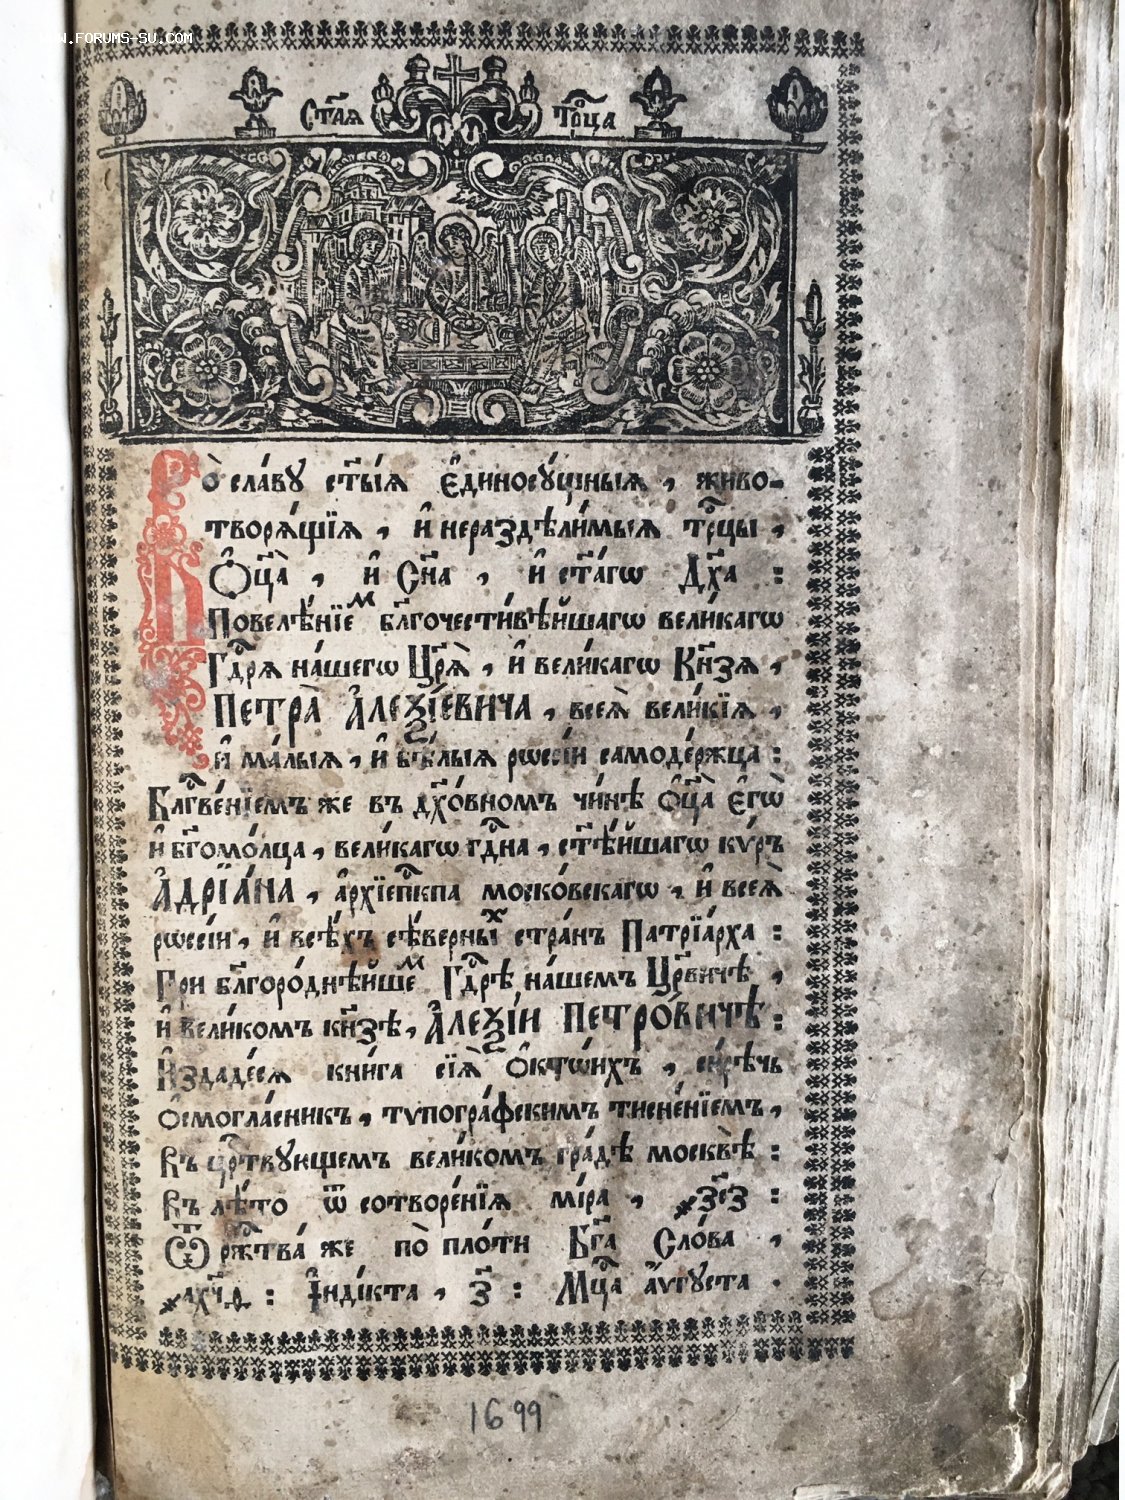 WWW.FORUMS-SU.COM
Ст҃ая Трⷪ҇ца
Во сла́вꙋ ст҃ы́ѧ є҆диносꙋ́щныѧ , живо-
творѧ́щїѧ , и҆ нераздѣли́мыѧ трⷪ҇цы ,
Ѻ҆ц҃а̀ , и҆ Сн҃а , и҆ ст҃а́гѡ Дх҃а :
Повелѣ́нїеⷨ бл҃гочести́вѣйшагѡ вели́кагѡ
Гдⷭ҇рѧ на́шегѡ Цр҃ѧ̀ , и҆ вели́кагѡ Кн҃зѧ ,
ПЕТРА̀ А҆ЛЕѮІ́ЕВИЧА , всеѧ̀ вели́кїѧ ,
и҆ ма́лыѧ , и҆ бѣ́лыѧ рѡссі́и самоде́ржца :
Блгⷭ҇ве́нїемъ же въ дх҃о́вномъ чи́нѣ ѻ҆ц҃а̀ є҆гѡ̀
и҆ бг҃омо́лца , вели́кагѡ гдⷭ҇на , ст҃ѣ́йшагѡ кѵ́ръ
АДРЇА́НА , а҆рхїепⷭ҇кпа моско́вскагѡ , и҆ всеѧ̀
рѡссі́и , и҆ всѣ́хъ сѣ́верныⷯ стра́нъ Патрїа́рха :
При бл҃горо́днѣйшеⷨ Гдⷭ҇рѣ на́шемъ Црⷭ҇вичѣ ,
и҆ вели́комъ кн҃зѣ , А҆ЛЕѮІ́И ПЕТРО́ВИЧѢ :
И҆здаде́сѧ кни́га сїѧ̀ Ѻ҆ктѡ́ихъ , си́рѣчь
ѻ҆смогла́сникъ , тѵпогра́фскимъ тисне́нїемъ ,
Въ црⷭ҇твꙋющемъ вели́комъ гра́дѣ москвѣ̀ :
Въ лѣ́то ѿ сотворе́нїѧ мі́ра , ҂зс҃з :
Ѿ ржⷭ҇тва́ же по̀ пло́ти Бг҃а Сло́ва ,
҂ахч҃ѳ : І҆нді́кта , з҃ : Мцⷭ҇а а҆́ѵгꙋста .
1699